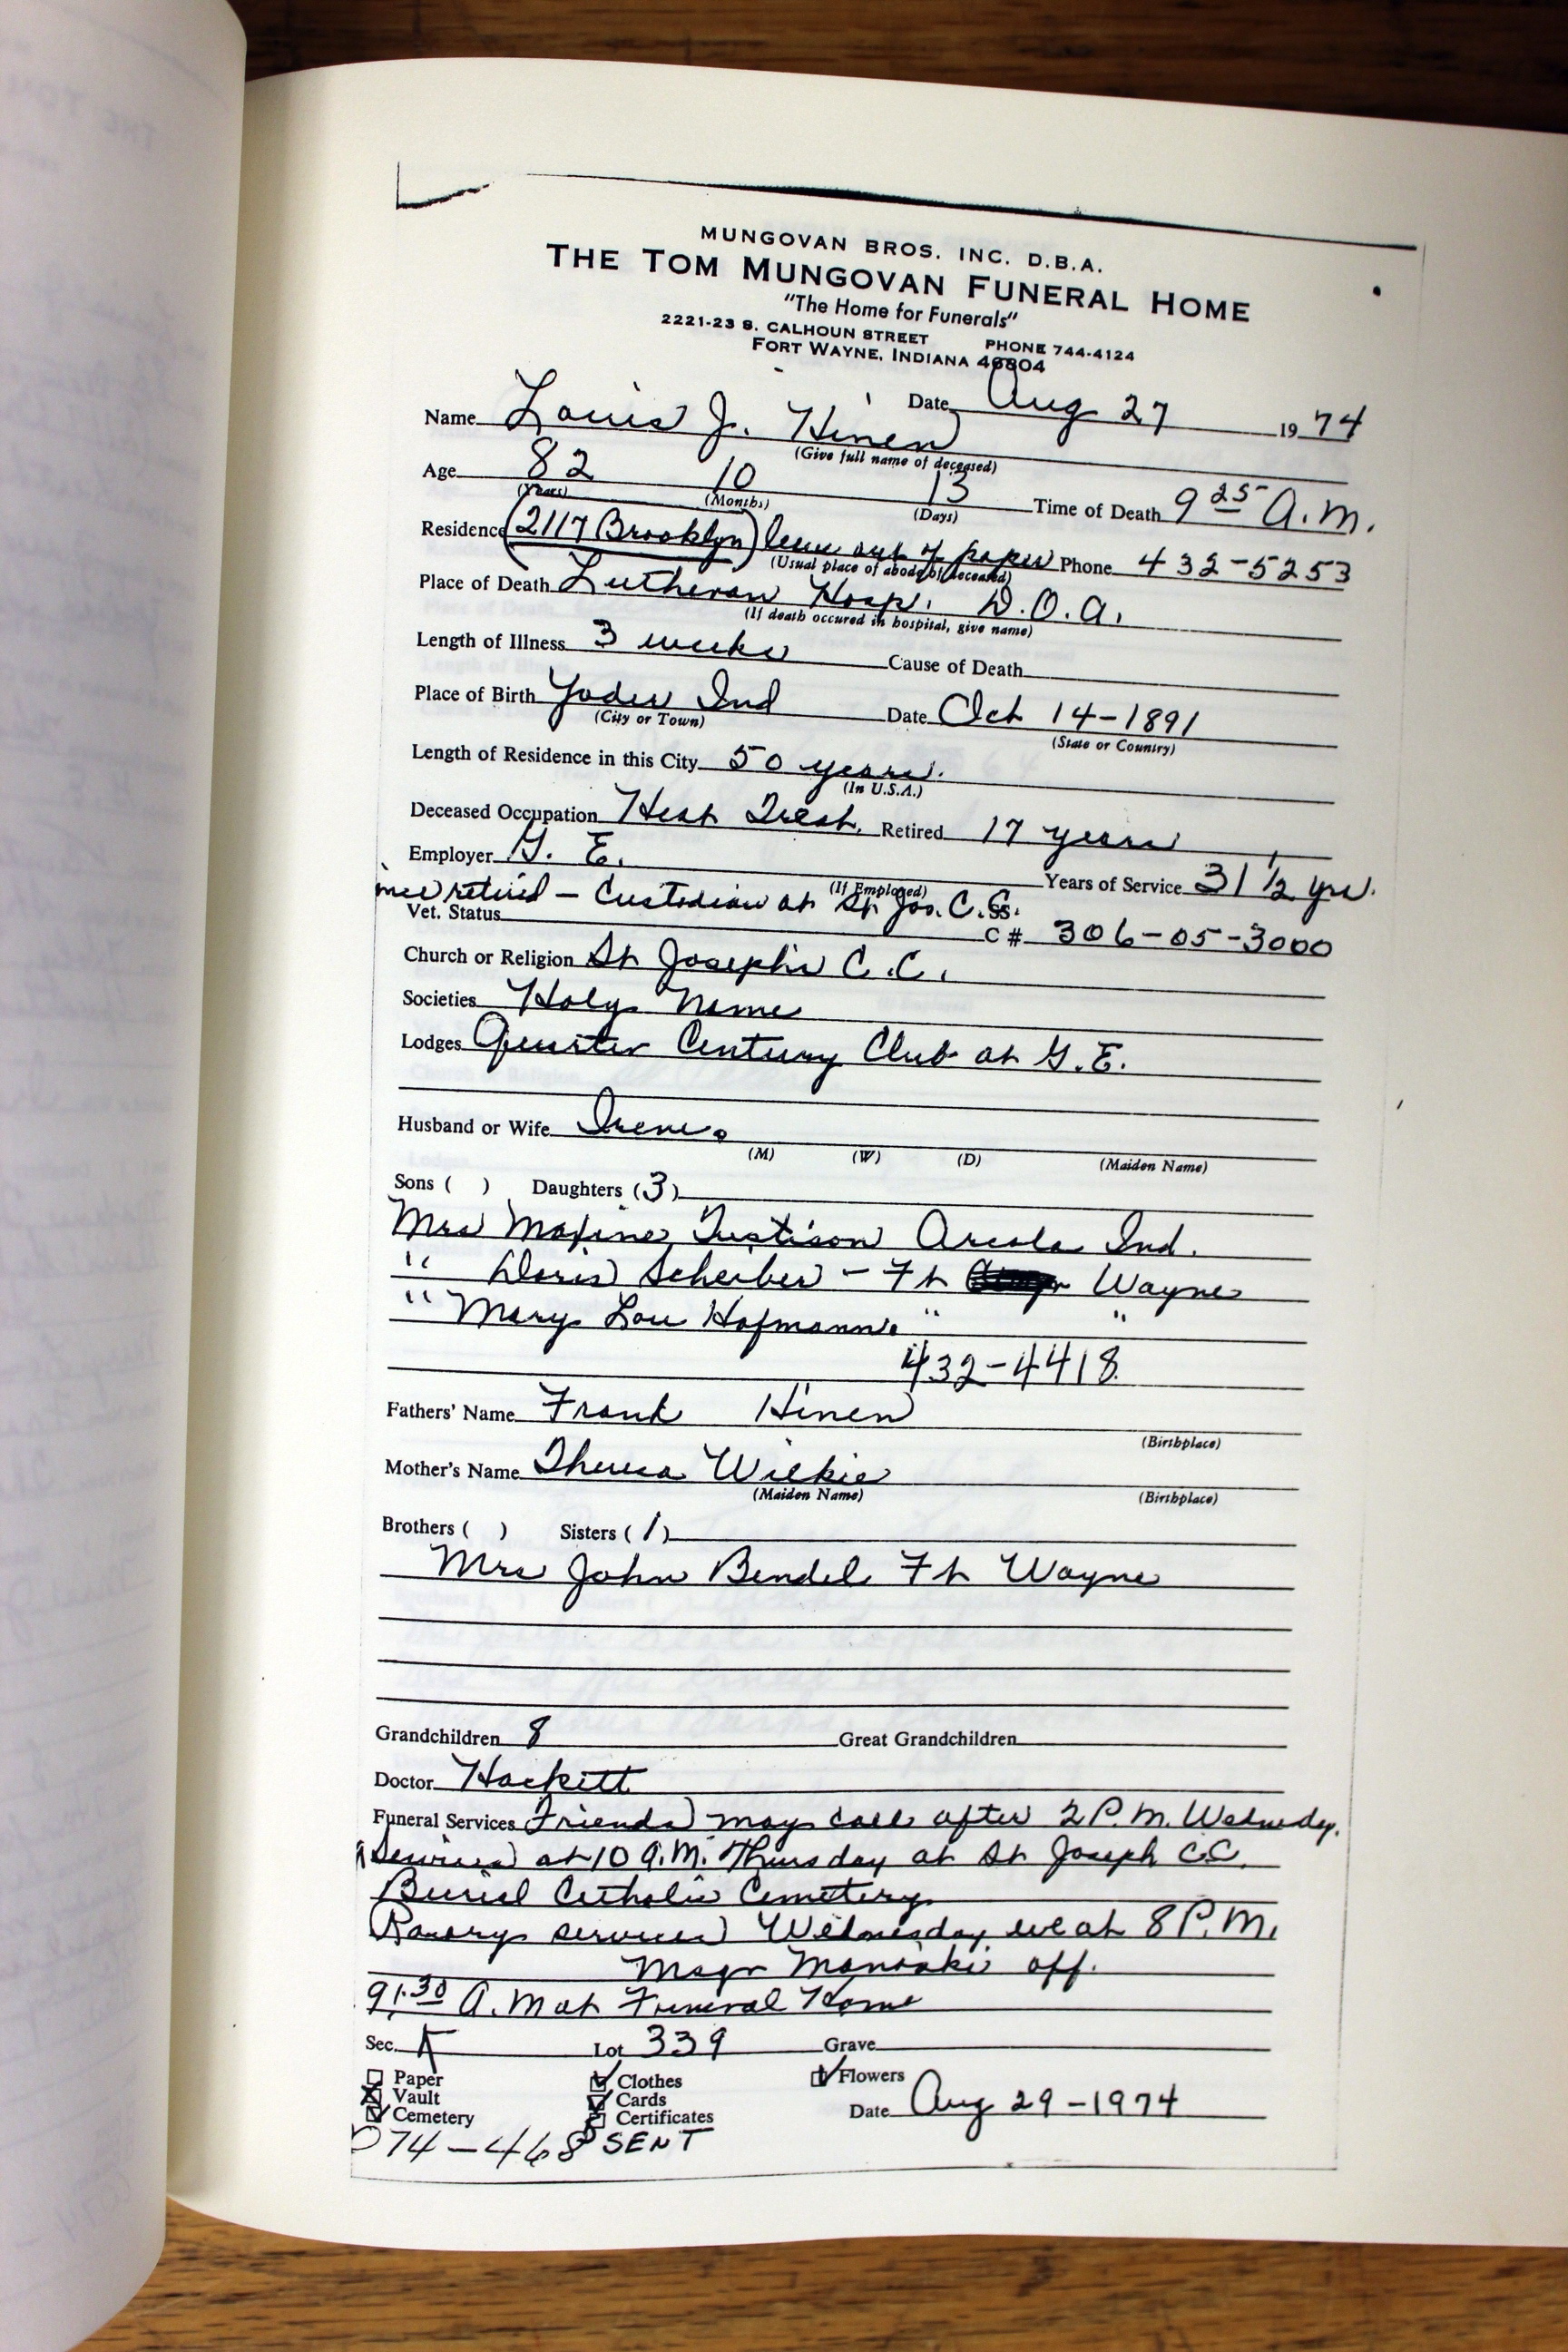 MUNGOVAN BROS. INC. D.B.A.
THE TOM MUNGOVAN FUNERAL HOME
"The Home for Funerals"
2221-23 S. CALHOUN STREET PHONE 744-4124
FORT WAYNE, INDIANA 46804
Date Aug 27 19 74
Name Louis J. Hinen
(Give full name of deceased)
Age 82 10 13 Time of Death 9 25 A.M.
(Years) (Months) (Days)
Residence (2117 Brooklyn) leave out of paper Phone 432-5253
(Usual place of abode of deceased)
Place of Death Lutheran Hosp. D.O.A.
(If death occured in hospital, give name)
Length of Illness 3 weeks Cause of Death
Place of Birth Yoder Ind Date Oct 14-1891
(City or Town) (State or Country)
Length of Residence in this City 50 years.
(In U.S.A.)
Deceased Occupation Heat Treat. Retired 17 years
Employer G. E. Years of Service 31 1/2 yrs.
(If Employed)
retired - Custodian at St Jos. C.C.
Vet. Status SS. C # 306-05-3000
Church or Religion St Josephs C.C.
Societies Holy Name
Lodges Quarter Century Club at G.E.
Husband or Wife Irene.
(M) (W) (D) (Maiden Name)
Sons ( ) Daughters (3)
Mrs Maxine Tustison Arcola Ind.
" Doris Scheiber - Ft Wayne
" Mary Lou Hofmann. " "
432-4418
Fathers' Name Frank Hinen
(Birthplace)
Mother's Name Theresa Wilkie
(Maiden Name) (Birthplace)
Brothers ( ) Sisters (1)
Mrs John Bendel Ft Wayne
Grandchildren 8 Great Grandchildren
Doctor Hackett
Funeral Services Friends may call after 2 P.M. Wednesday.
Services at 10 A.M. Thursday at St Joseph C.C.
Burial Catholic Cemetery
Rosary services Wednesday eve at 8 P.M.
Msgr Manoski off.
9:30 A.M at Funeral Home
Sec. K Lot 339 Grave
Paper Clothes Flowers
Vault Cards
Cemetery Certificates Date Aug 29-1974
74-468 SENT